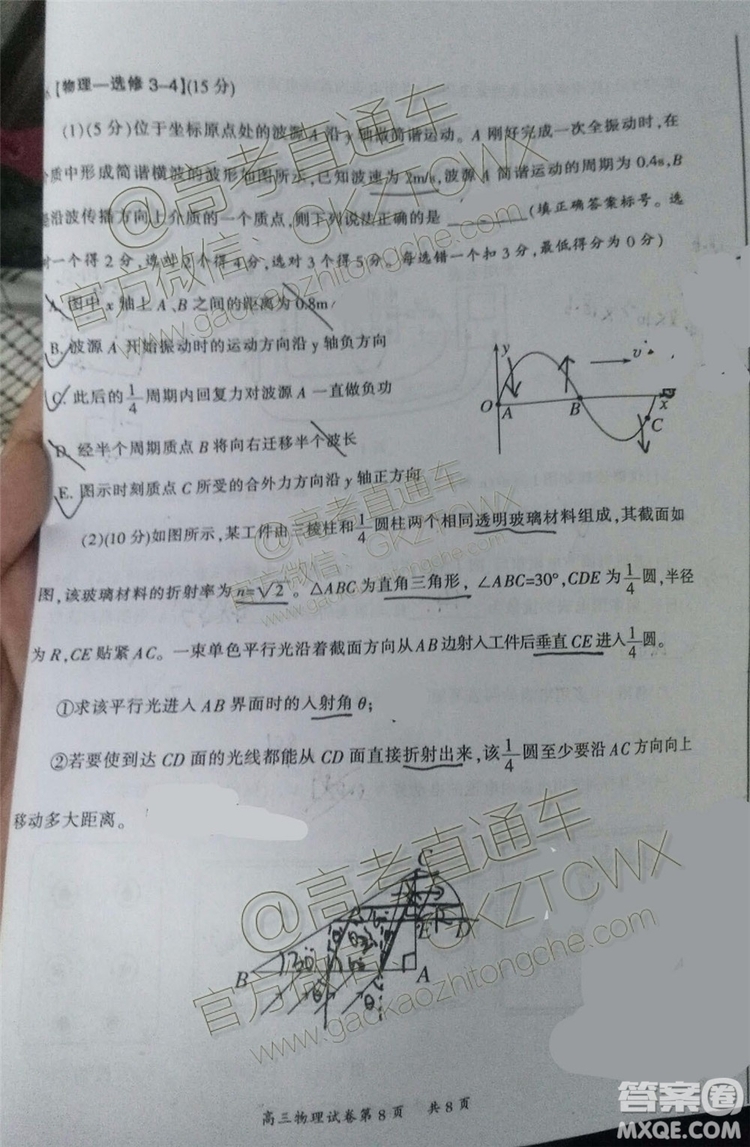 [物理—选修3-4](15分)
(1)(5分)位于坐标原点处的波源A沿y轴做简谐运动。A刚好完成一次全振动时,在
质中形成简谐横波的波形如图所示,已知波速为2m/s,波源A简谐运动的周期为0.4s,B
沿波传播方向上介质的一个质点,则下列说法正确的是 ________(填正确答案标号。选
对一个得2分,选对2个得4分,选对3个得5分。每选错一个扣3分,最低得分为0分)
A.图中x轴上A、B之间的距离为0.8m
B.波源A开始振动时的运动方向沿y轴负方向
C.此后的1/4周期内回复力对波源A一直做负功
D.经半个周期质点B将向右迁移半个波长
E.图示时刻质点C所受的合外力方向沿y轴正方向
y
v
O
A
B
x
C
(2)(10分)如图所示,某工件由三棱柱和1/4圆柱两个相同透明玻璃材料组成,其截面如
图,该玻璃材料的折射率为n=√2。△ABC为直角三角形,∠ABC=30°,CDE为1/4圆,半径
为R,CE贴紧AC。一束单色平行光沿着截面方向从AB边射入工件后垂直CE进入1/4圆。
①求该平行光进入AB界面时的入射角θ;
②若要使到达CD面的光线都能从CD面直接折射出来,该1/4圆至少要沿AC方向向上
移动多大距离。
C
E
D
R
B
30°
A
θ
θ
@高考直通车
官方微信:GKZTCWX
www.gaokaozhitongche.com
@高考直通车
官方微信:GKZTCWX
www.gaokaozhitongche.com
高三物理试卷第8页 共8页
答案圈
MXQE.COM